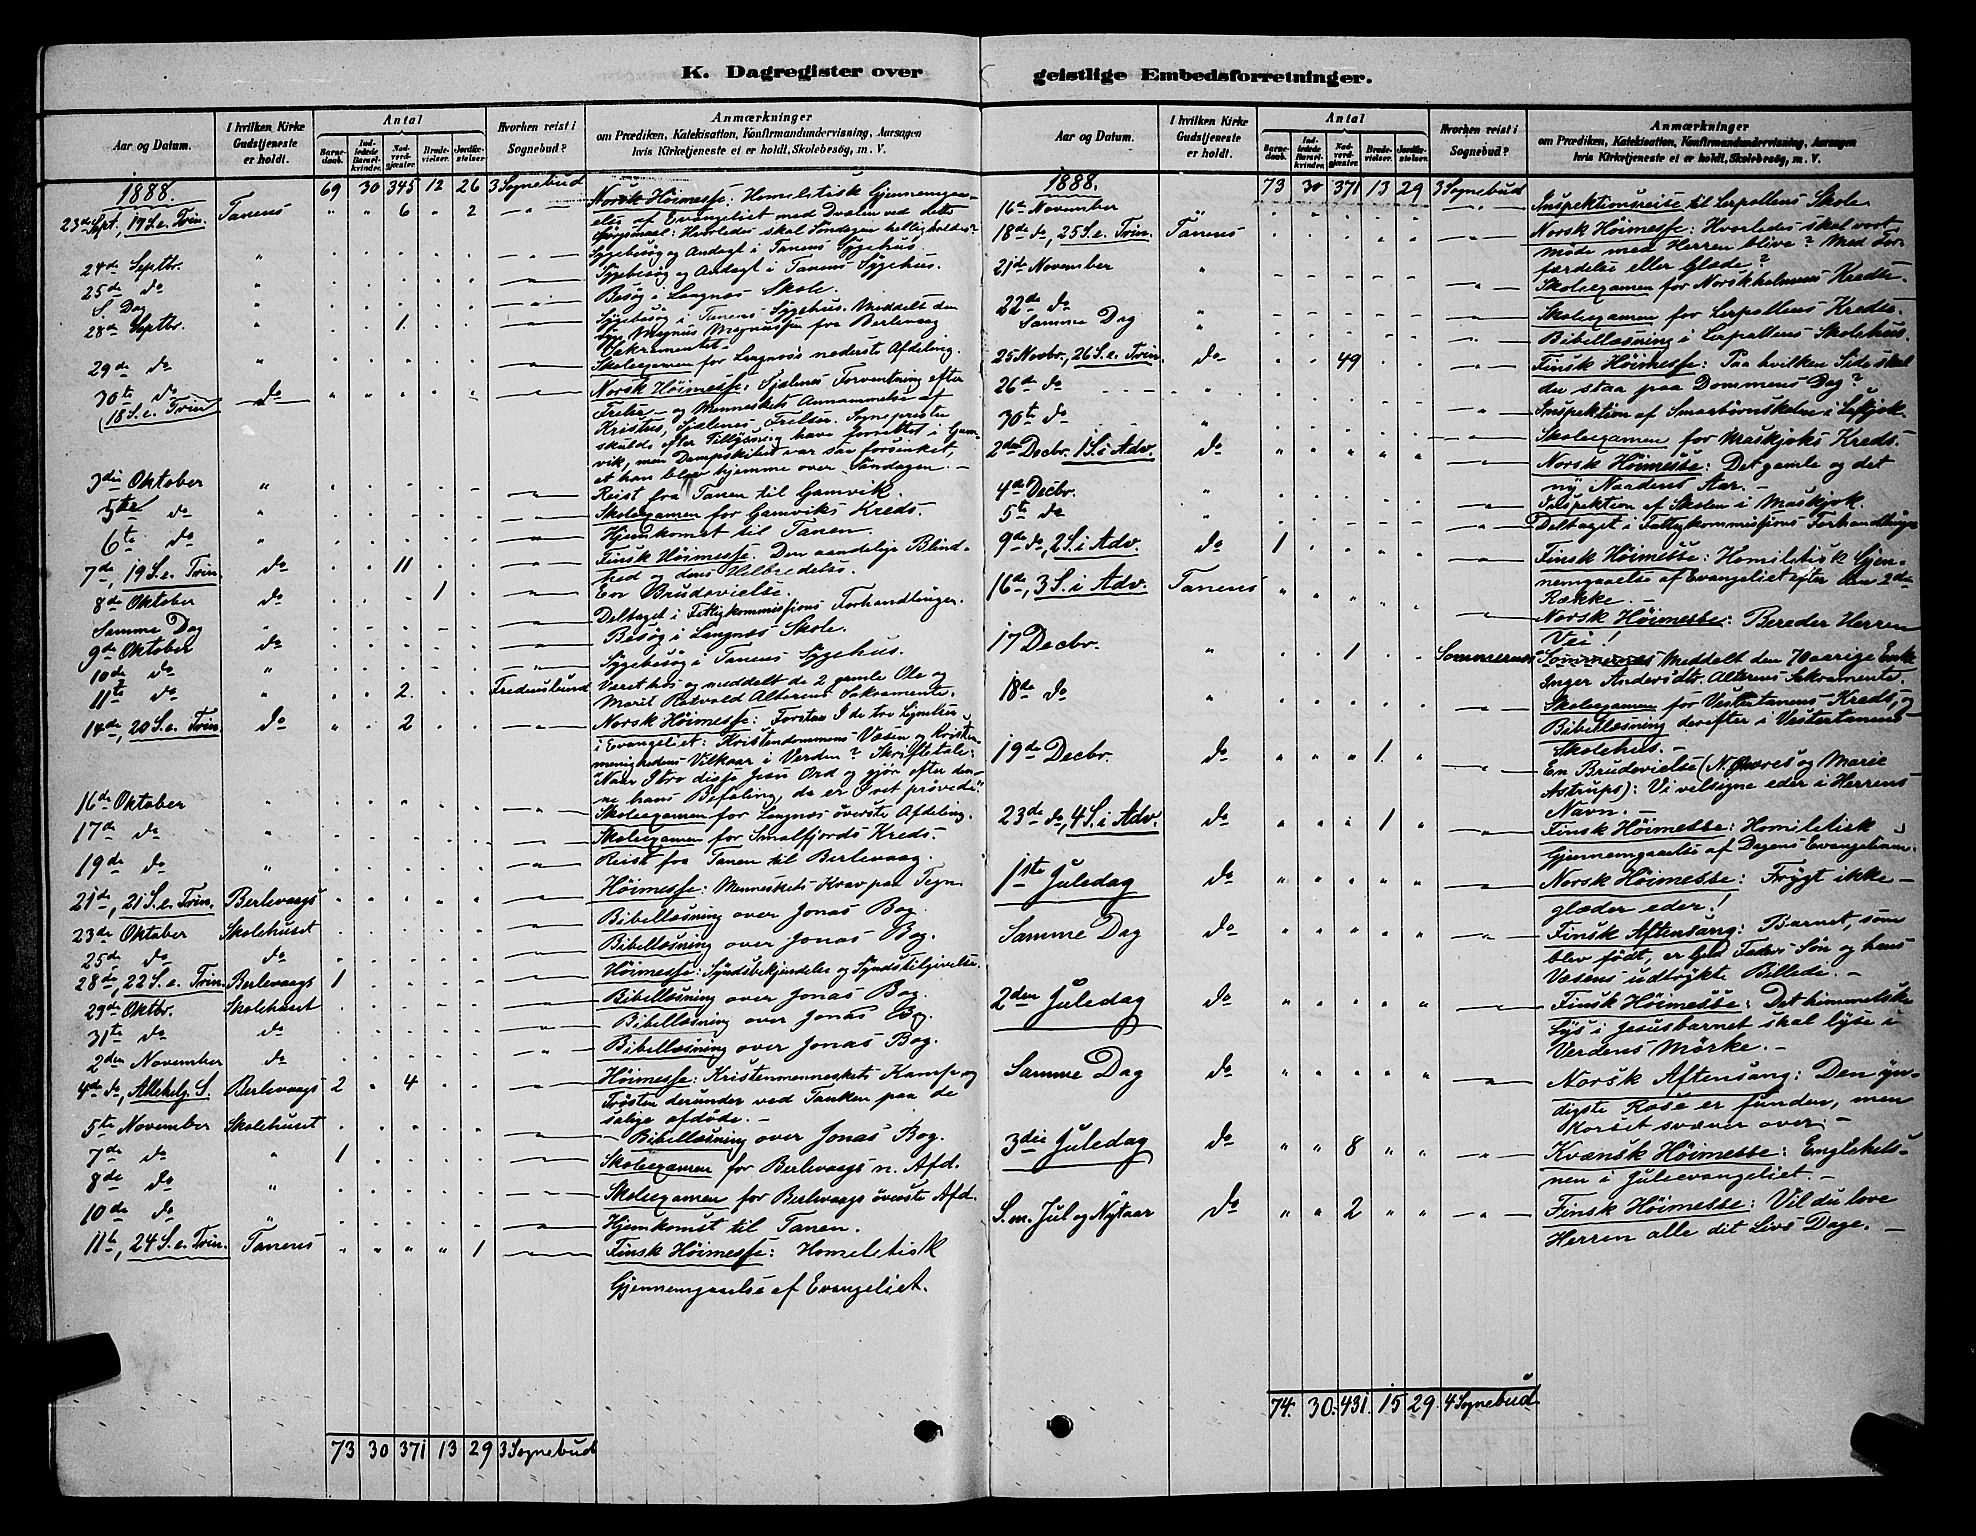 K. Dagregister over
geistlige Embedsforretninger.
Aar og Datum.
I hvilken Kirke Gudstjeneste er holdt.
Antal
Barne-daab.
Ind-ledede Barsel-kvinder.
Nad-verd-gjæster.
Brude-vielser.
Jordfæ-stelser.
Hvorhen reist i Sognebud?
Anmærkninger
om Prædiken, Katekisation, Konfirmandundervisning, Aarsagen
hvis Kirketjeneste ei er holdt, Skolebesøg, m. V.
1888. 69 30 345 12 26 3 Sognebud
23de Sept., 17 S. e. Trin. Tanens " " 6 " 2 Norsk Höimesse: Homiletisk Gjennemgaa-
else af Evangeliet med Dvælen ved dette
Spörgsmaal: Hvorledes skal Söndagen helligholdes?
24de Septbr. Sygebesög og Andagt i Tanens Sygehus.
25de do Sygebesög og Andagt i Tanens Sygehus.
S. Dag Besög i Langnæs Skole.
28de Septbr. 1. Sygebesög i Tanens Sygehus. Meddelt den
syge Magnus Magnussen fra Berlevaag
Sakramentet.
29de do Skoleexamen for Langnæs nederste Afdeling.
30te do do Norsk Höimesse: Sjælenes Forventning efter
(18 S. e. Trin) Frelse og Menneskets Annammelse af
Kristus, Sjælenes Frelser. Sognepresten
skulde efter Tillysning have forrettet i Gam-
vik, men Dampskibet var saa forsinket,
at han blev hjemme over Söndagen. —
3die Oktober Reist fra Tanen til Gamvik.
5te do Skoleexamen for Gamviks Kreds.
6te do Hjemkomst til Tanen.
7de, 19 S. e. Trin. do 11 Finsk Höimesse. Den aandelige Blind-
hed og dens Helbredelse.
8de Oktober do 1 En Brudevielse.
Samme Dag Deltaget i Fattigkommissions Forhandlinger.
9de Oktober Besög i Langnæs Skole.
10de do Sygebesög i Tanens Sygehus.
11te do 2. Fredenslund Været hos og meddelt de 2 gamle Ole og
Marit Ratvold Alterens Sakramente.
14de, 20 S. e. Trin. do 2 Norsk Höimesse: Forstaa I de tre Lignelser
i Evangeliet: Kristendommens Væsen og Kristen-
menighedens Vilkaar i Verden? Skriftetale:
"Naar I tro disse Jesu Ord og gjör efter den-
ne hans Befaling, da er I vet prövede."
16de Oktober Skoleexamen for Langnæs överste Afdeling.
17de do Skoleexamen for Smalfjords Kreds.
19de do Reist fra Tanen til Berlevaag.
21de, 21 S. e. Trin. Berlevaags Höimesse: Menneskets Krav paa Tegn
23de Oktober Skolehuset Bibellæsning over Jonas Bog.
25de do do Bibellæsning over Jonas Bog.
28de, 22 S. e. Trin. Berlevaags 1 Höimesse: Syndsbekjendelse og Syndstilgivelse.
29de Oktbr. Skolehuset Bibellæsning over Jonas Bog.
31te do do Bibellæsning over Jonas Bog.
2den November do Bibellæsning over Jonas Bog.
4de do, Allehelg. S. Berlevaags 2 4 Höimesse: Kristenmenneskets Kamp og
Trösten derunder ved Tanken paa de
salige afdöde. —
5te November Skolehuset Bibellæsning over Jonas Bog.
7de do " 1 Skoleexamen for Berlevaags n. Afd.
8de do " Skoleexamen for Berlevaags överste Afd.
10de do " Hjemkomst til Tanen.
11te, 24 S. e. Trin. Tanens 1 Finsk Höimesse: Homeletisk
Gjennemgaaelse af Evangeliet.
73 30 371 13 29 3 Sognebud
Aar og Datum.
I hvilken Kirke Gudstjeneste er holdt.
Antal
Barne-daab.
Ind-ledede Barsel-kvinder.
Nad-verd-gjæster.
Brude-vielser.
Jordfæ-stelser.
Hvorhen reist i Sognebud?
Anmærkninger
om Prædiken, Katekisation, Konfirmandundervisning, Aarsagen
hvis Kirketjeneste ei er holdt, Skolebesøg, m. V.
1888. 73 30 371 13 29 3 Sognebud
16de November Inspektionsreise til Lerpollens Skole
18de do, 25 S. e. Trin. Tanens Norsk Höimesse: Hvorledes skal vort
möde med Herren blive? Med For-
færdelse eller Glæde?
21de November Skoleexamen for Norskholmens Kreds.
22de do Skoleexamen for Lerpollens Kreds.
Samme Dag Bibellæsning i Lerpollens Skolehus.
25 Novbr., 26 S. e. Trin. do 49 Finsk Höimesse: Paa hvilken Side skal
du staa paa Dommens Dag?
26de do Inspektion af Smaabörnskolen i Leftjok.
30te do Skoleexamen for Maskjoks Kreds.
2den Decbr. 1 S. i Adv. do Norsk Höimesse: Det gamle og det
ny Naadens Aar. —
4de Decbr. Inspektion af Skolen i Maskjok.
5te do Deltaget i Fattigkommissions Forhandlinger
9de do, 2 S. i Adv. do 1 Finsk Höimesse: Homiletisk Gjen-
nemgaaelse af Evangeliet efter den 2den
Række. —
16de, 3 S. i Adv. Tanens Norsk Höimesse: Bereder Herren
Vei!
17 Decbr. 1 Sommernes Sommernes Meddelt den 70 aarige Enke
Inger Andersdtr. Alterens Sakramente.
18de do Skoleexamen for Vestertanens Kreds, og
Bibellæsning derefter i Vestertanens
Skolehus. —
19de Decbr. do 1. En Brudevielse (N. og Marie
Astrups): Vi velsigne eder i Herrens
Navn. —
23de do, 4 S. i Adv. do 1 Finsk Höimesse: Homiletisk
Gjennemgaaelse af Dagens Evangelium.
1ste Juledag do Norsk Höimesse: Frygt ikke —
glæder eder!
Samme Dag do Finsk Aftensang: Barnet, som
blev födt, er Gud Faders Sön og hans
Væsens udtrykte Billede. —
2den Juledag do Finsk Höimesse: Det himmelske
Lys i Jesusbarnet skal lyse i
Verdens Mörke. —
Samme Dag do Norsk Aftensang: Den yn-
digste Rose er funden, men
Korset svæver over. —
3die Juledag do 8 Kvænsk Höimesse: Englehels-
nen i Juleevangeliet. —
S. m. Jul og Nytaar do 2 Finsk Höimesse: Vil du love
Herren alle dit Livs Dage. —
74. 30. 431. 15 29. 4 Sognebud